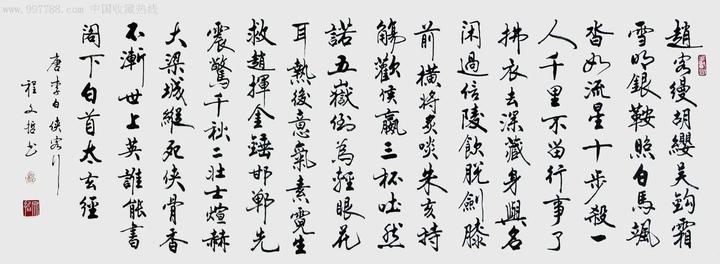 www.997788.com 中国收藏热线
趙客縵胡纓吳鉤霜
雪明銀鞍照白馬颯
沓如流星十步殺一
人千里不留行事了
拂衣去深藏身與名
閑過信陵飲脫劍膝
前橫將炙啖朱亥持
觴歡侯嬴三杯吐然
諾五嶽倒為輕眼花
耳熱後意氣素霓生
救趙揮金錘邯鄲先
震驚千秋二壯士煊赫
大梁城縱死俠骨香
不漸世上英誰能書
閣下白首太玄經
唐李白俠客行
程文哲书